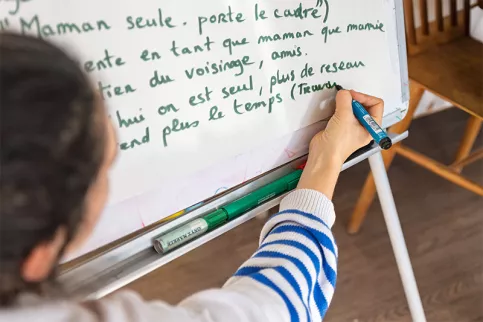 "Maman seule. porte le cadre")
ente en tant que maman que mamie
tien du voisinage, amis.
hui on est seul, plus de reseau
end plus le temps (Travail